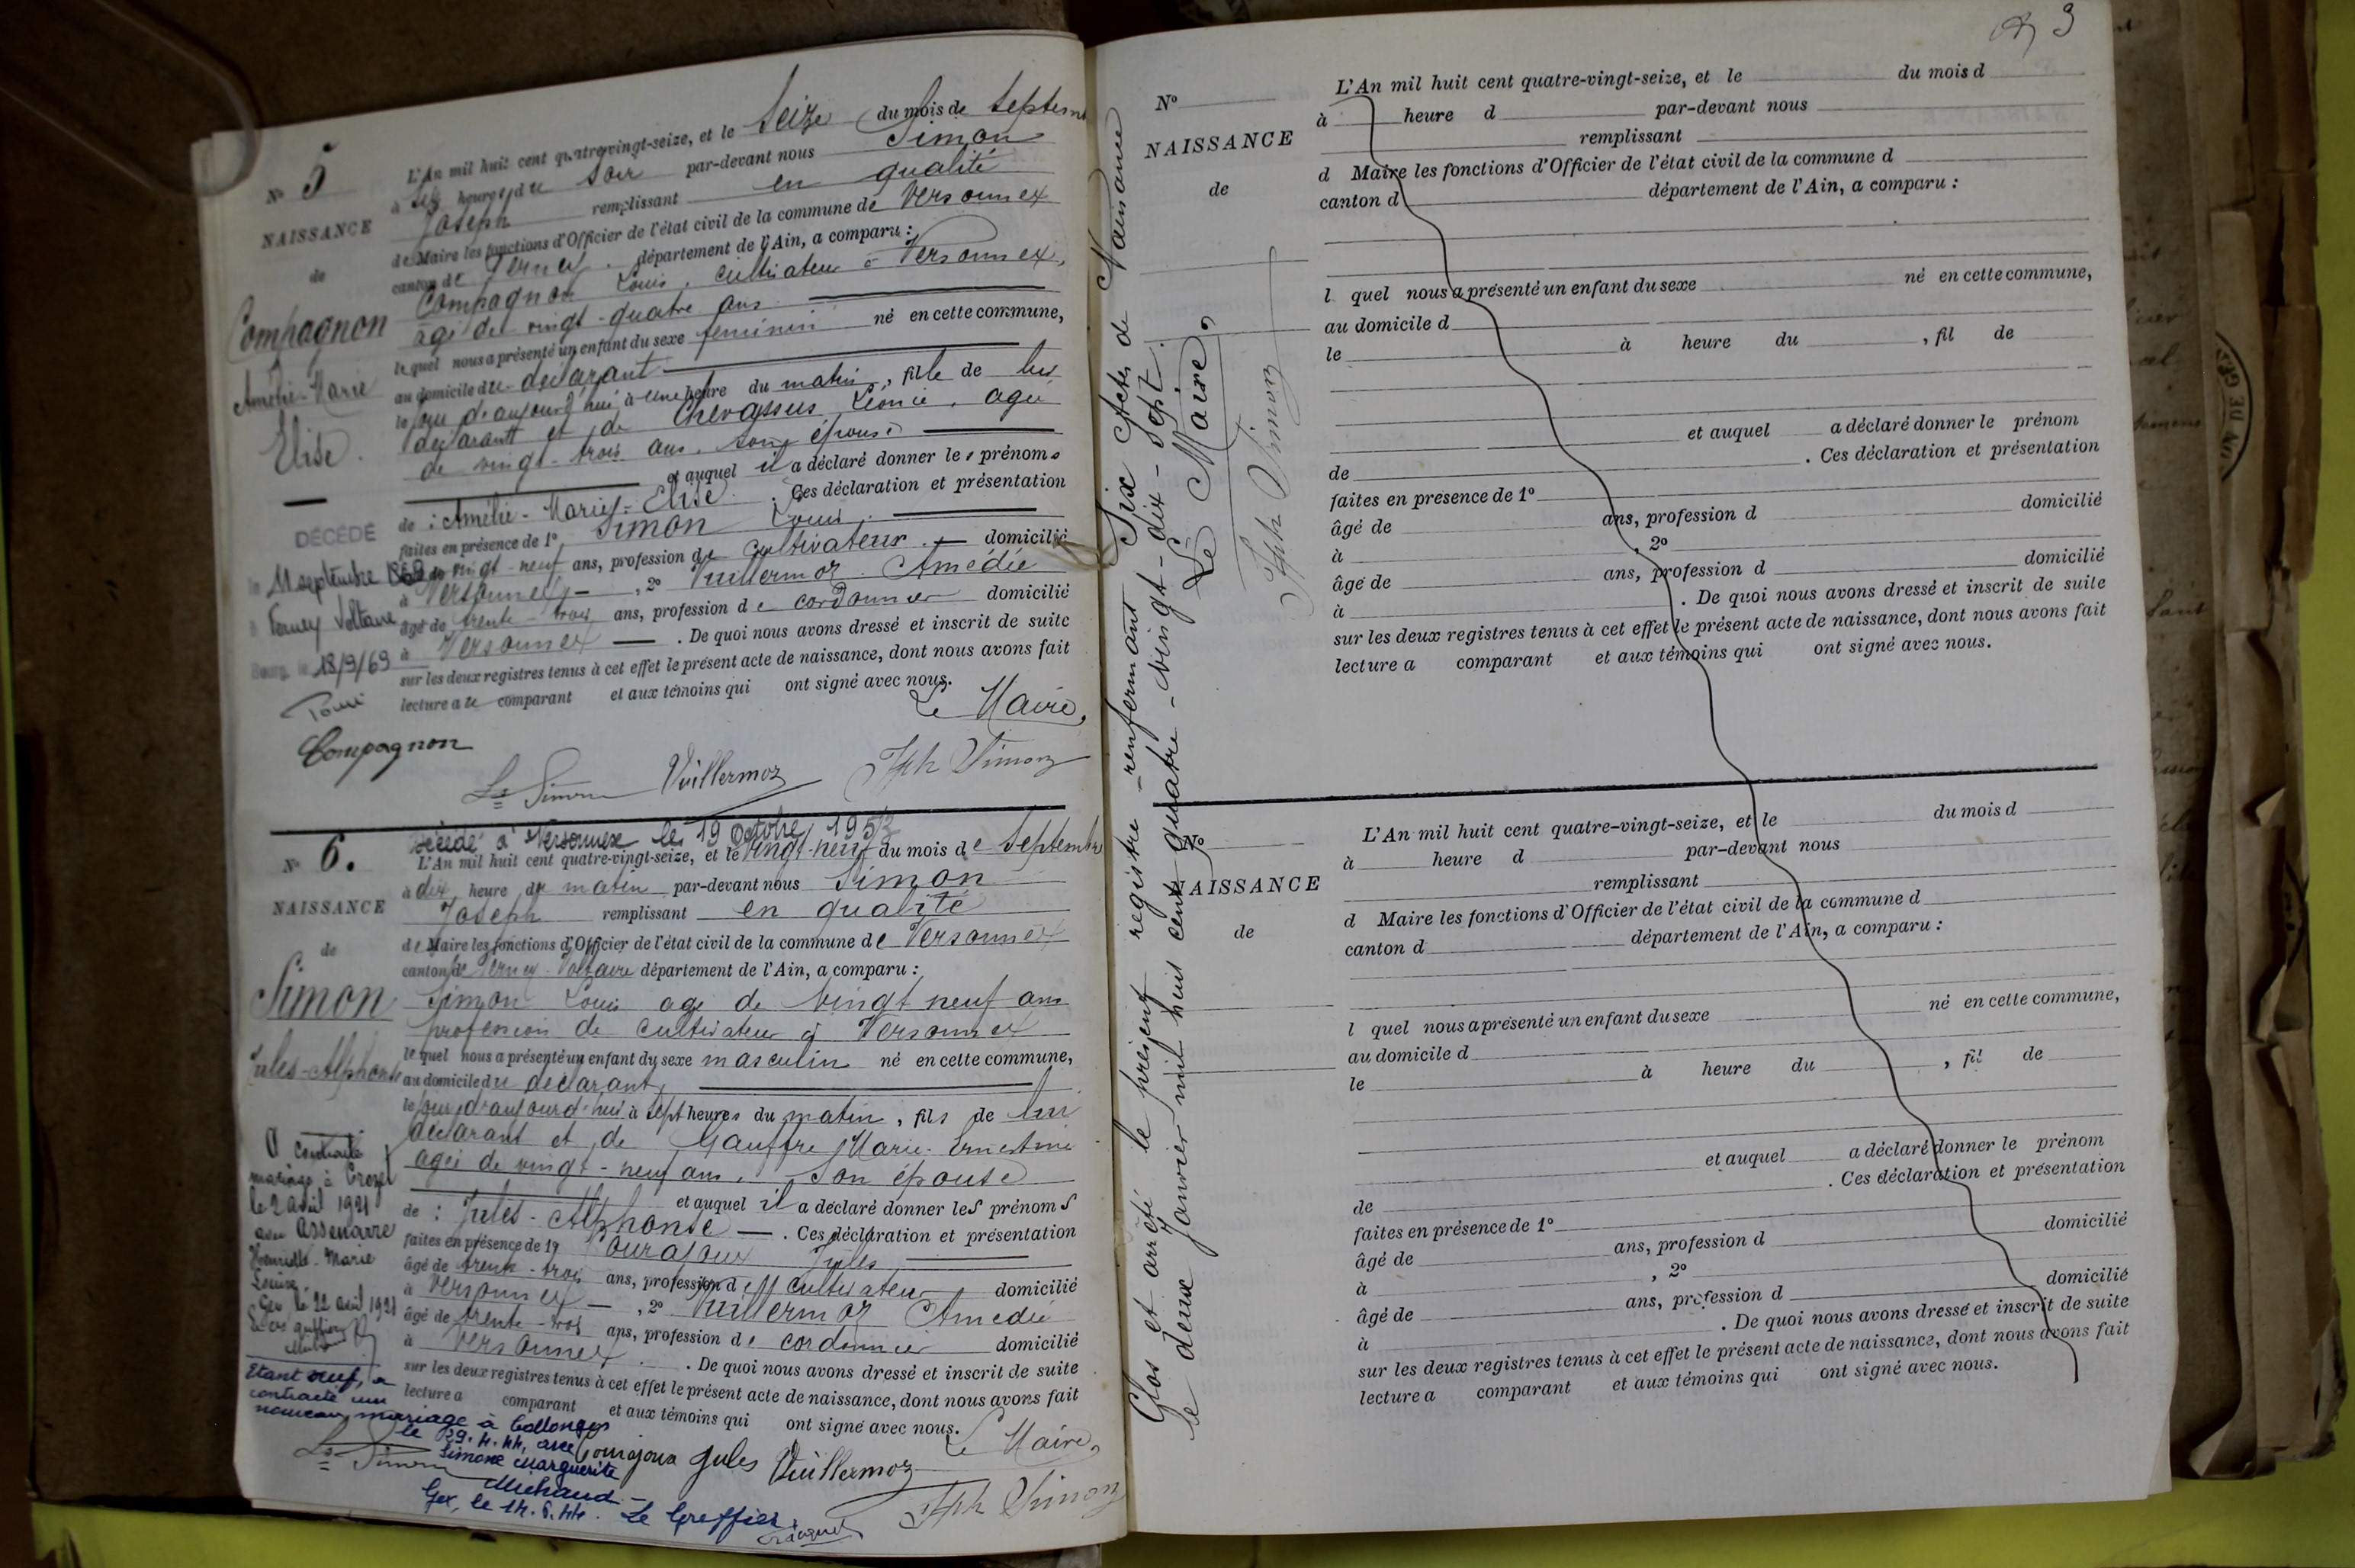 N° 5
NAISSANCE
de
Compagnon
Amélie-Marie
Elise.
L'An mil huit cent quatre-vingt-seize, et le Seize du mois de Septem
à six heures du soir par-devant nous Simon
Joseph remplissant en qualité
de Maire les fonctions d'Officier de l'état civil de la commune de Versonnex
canton de Ferney. département de l'Ain, a comparu :
Compagnon Louis, cultivateur à Versonnex,
agé de vingt-quatre ans
lequel nous a présenté un enfant du sexe feminin né en cette commune,
au domicile du déclarant
le jour d'aujourd'hui à une heure du matin, fille de lui
déclarant et de Chevassus Léonie, agée
de vingt-trois ans, son épouse
et auquel il a déclaré donner les prénoms
de : Amélie-Marie-Elise. Ces déclaration et présentation
faites en présence de 1° Simon Louis,
vingt-neuf ans, profession de cultivateur domicilié
à Versonnex, 2° Vuillermoz Amédée
âgé de trente-trois ans, profession de cordonnier domicilié
à Versonnex. De quoi nous avons dressé et inscrit de suite
sur les deux registres tenus à cet effet le présent acte de naissance, dont nous avons fait
lecture au comparant et aux témoins qui ont signé avec nous.
DÉCÉDÉ
11 septembre 1969
Ferney Voltaire
18/9/69
Le Maire,
Compagnon
Ls Simon Vuillermoz Jph Simon
décédé à Versonnex le 19 Octobre 195
N° 6.
NAISSANCE
de
Simon
Jules-Alphonse
L'An mil huit cent quatre-vingt-seize, et le vingt-neuf du mois de Septembre
à dix heure du matin par-devant nous Simon
Joseph remplissant en qualité
de Maire les fonctions d'Officier de l'état civil de la commune de Versonnex
canton de Ferney-Voltaire département de l'Ain, a comparu :
Simon Louis agé de vingt neuf ans
profession de cultivateur à Versonnex
lequel nous a présenté un enfant du sexe masculin né en cette commune,
au domicile du déclarant,
le jour d'aujourd'hui à sept heures du matin, fils de lui
déclarant et de Gauffre Marie-Ernestine
agée de vingt-neuf ans, son épouse
et auquel il a déclaré donner les prénoms
de : Jules-Alphonse. Ces déclaration et présentation
faites en présence de 1° Pourajoux Jules
âgé de trente-trois ans, profession de cultivateur domicilié
à Versonnex, 2° Vuillermoz Amédée
âgé de trente-trois ans, profession de cordonnier domicilié
à Versonnex. De quoi nous avons dressé et inscrit de suite
sur les deux registres tenus à cet effet le présent acte de naissance, dont nous avons fait
lecture a comparant et aux témoins qui ont signé avec nous.
A contracté
mariage à Crozet
le 2 avril 1921
avec Assenarre
Henriette-Marie
Louise.
Gex le 22 avril 1921
Etant veuf, a
contracté un
nouveau mariage à Collonges
le 29.4.44, avec
Simone Marguerite
Michaud.-
Gex, le 14.6.44. Le Greffier,
Le Maire,
Ls Simon Pourajoux Jules Vuillermoz
Jph Simon
Clos et arrêté le présent registre renfermant Six Actes de Naissance
le deux Janvier mil huit cent quatre-vingt-dix-sept.
Le Maire,
Jph Simon
3
N°
NAISSANCE
de
L'An mil huit cent quatre-vingt-seize, et le du mois d
à heure d par-devant nous
remplissant
d Maire les fonctions d'Officier de l'état civil de la commune d
canton d département de l'Ain, a comparu :
l quel nous a présenté un enfant du sexe né en cette commune,
au domicile d
le à heure du , fil de
et auquel a déclaré donner le prénom
de . Ces déclaration et présentation
faites en présence de 1°
âgé de ans, profession d domicilié
à , 2°
âgé de ans, profession d domicilié
à . De quoi nous avons dressé et inscrit de suite
sur les deux registres tenus à cet effet le présent acte de naissance, dont nous avons fait
lecture a comparant et aux témoins qui ont signé avec nous.
N°
NAISSANCE
de
L'An mil huit cent quatre-vingt-seize, et le du mois d
à heure d par-devant nous
remplissant
d Maire les fonctions d'Officier de l'état civil de la commune d
canton d département de l'Ain, a comparu :
l quel nous a présenté un enfant du sexe né en cette commune,
au domicile d
le à heure du , fil de
et auquel a déclaré donner le prénom
de . Ces déclaration et présentation
faites en présence de 1°
âgé de ans, profession d domicilié
à , 2°
âgé de ans, profession d domicilié
à . De quoi nous avons dressé et inscrit de suite
sur les deux registres tenus à cet effet le présent acte de naissance, dont nous avons fait
lecture a comparant et aux témoins qui ont signé avec nous.